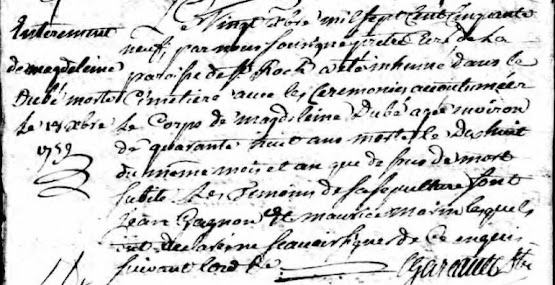 Enterement
de magdeleine
Dubé morte
Le 18 xbre
1759
Le Vingt xbre mil sept cent cinquante
neuf, par nous soussigné ptre des cure de La
paroisse de St Rock a ete inhumé dans le
Cimetiere avec les Ceremonies accoutumeés
Le Corps de magdeleine Dubé agee environ
de quarante huit ans morte le dishuit
du même mois et an que de sus de mort
subite Les Temoins de sa sepulture sont
Jean Gagnon et maurice morin lesquels
ont declaré ne scavoir signer de Ce enquis
suivant Lord